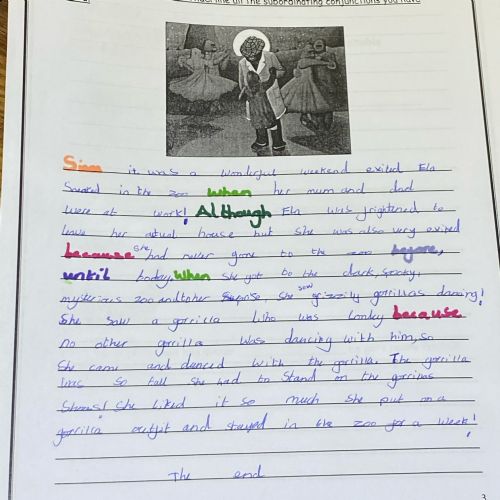 all the subordinating conjunctions you have
Since it was a wonderful weekend exited Ela
Sneaked in the zoo when her mum and dad
were at work! Although Ela was frightened to
leave her actual house but she was also very exited
because she had never gone to the zoo before,
until today. When she got to the dark, spooky,
mysterious zoo and to her surprise, she saw grizzily gorrillas dancing!
She saw a gorrilla who was lonley because
no other gorrilla was dancing with him, so
She came and danced with the gorrilla. The gorrilla
was so tall she had to stand on the gorrillas
Shoes! She liked it so much she put on a
gorrilla outfit and stayed in the zoo for a week!
The end
3